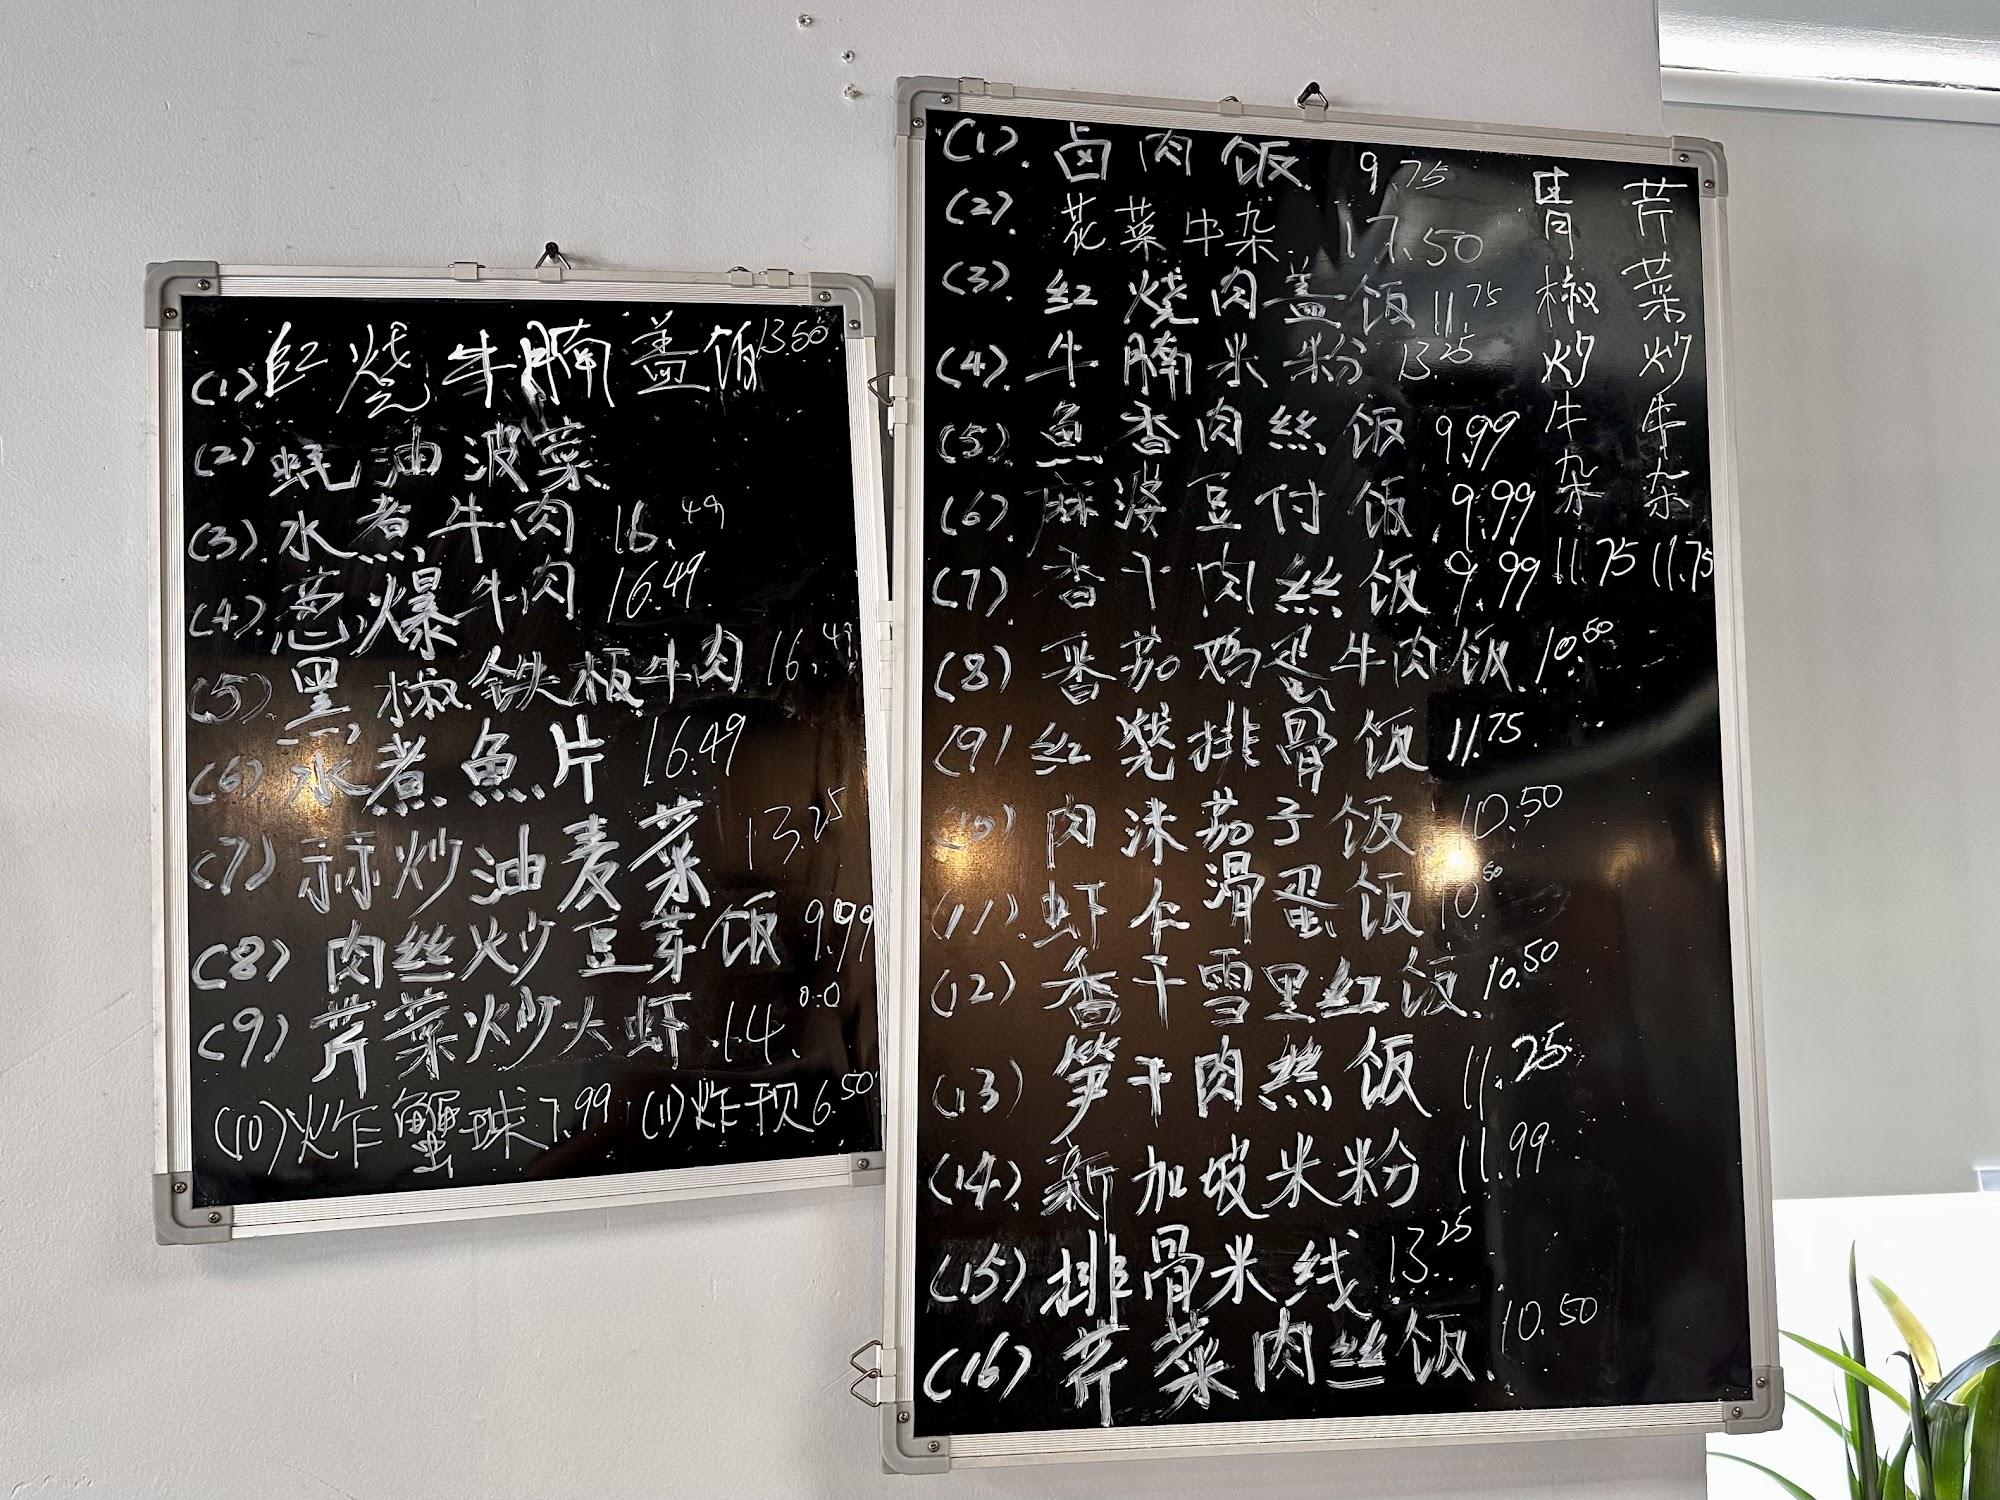 (1). 红烧牛腩盖饭 13.50
(2). 蚝油波菜
(3). 水煮牛肉 16.49
(4). 葱爆牛肉 16.49
(5) 黑椒铁板牛肉 16.49
(6). 水煮魚片 16.49
(7) 蒜炒油麦菜 13.25
(8) 肉丝炒豆芽饭 9.99
(9) 芹菜炒大虾 14.00
(10) 炸蟹球 7.99 (11) 炸 6.50
(1). 卤肉饭 9.75
(2). 花菜牛杂 17.50
(3). 红燒肉盖饭 11.75
(4). 牛腩米粉 13.25
(5). 魚香肉絲饭 9.99
(6). 麻婆豆付饭 9.99
(7) 香干肉絲饭 9.99
(8) 番茄鸡蛋牛肉饭 10.50
(9) 红烧排骨饭 11.75
(10) 肉沫茄子饭 10.50
(11) 虾仁滑蛋饭 10.50
(12) 香干雪里红饭 10.50
(13) 笋干肉絲饭 11.25
(14) 新加坡米粉 11.99
(15) 排骨米线 13.25
(16) 芹菜肉丝饭 10.50
青椒炒牛杂 11.75
芹菜炒牛杂 11.75